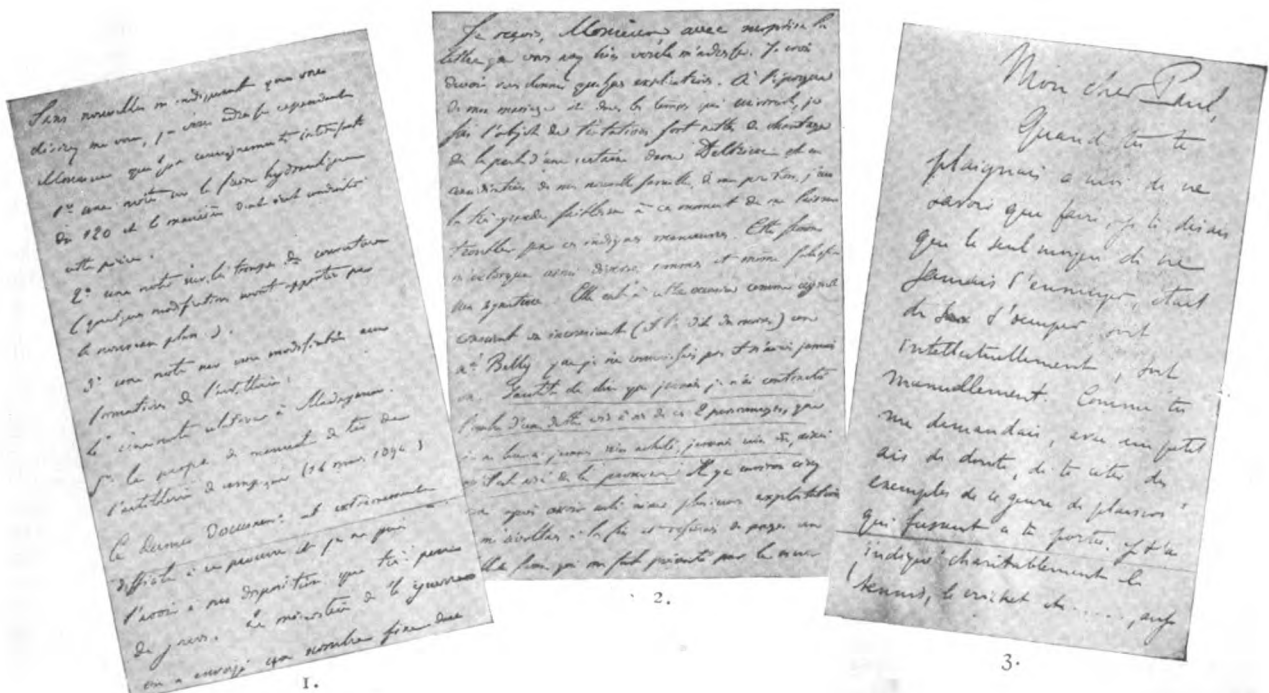 Sans nouvelles m'indiquant que vous
désirez me voir, je vous adresse cependant
Monsieur quelques renseignements intéressants
1° une note sur le frein hydraulique
du 120 et la manière dont s'est conduite
cette pièce.
2° une note sur les troupes de couverture
(quelques modifications seront apportées par
le nouveau plan).
3° une note sur une modification aux
formations de l'artillerie:
4° une note relative à Madagascar.
5° le projet de manuel de tir de
l'artillerie de campagne (14 mars 1894)
Ce dernier document est extrêmement
difficile à se procurer et je ne puis
l'avoir à ma disposition que très peu
de jours. Le ministère de la guerre
en a envoyé un nombre fixe dans
1.
Je reçois, Monsieur avec surprise la
lettre que vous avez bien voulu m'adresser. Je crois
devoir vous donner quelques explications. À l'époque
de mon mariage et dans les temps qui suivirent, je
fus l'objet de tentatives fort nettes de chantage
de la part d'une certaine dame et eu
de ma nouvelle famille, à ma position, j'eus
la très grande faiblesse à ce moment de me laisser
troubler par ces indignes manœuvres. Cette femme
m'extorqua ainsi diverses sommes et même
ma signature. Elle eut à cette occasion comme agent
conscient ou inconscient (il l'a dit du moins) un
que je ne connaissais pas et n'avais jamais
vu. Inutile de dire que jamais je n'ai contracté
l'ombre d'une dette vis à vis de ces 2 personnages, que
je ne leur ai jamais rien acheté, jamais rien dû,
Il y a environ cinq
ans après avoir subi ainsi plusieurs exploitations
je me révoltai à la fin et refusai de payer un
qui me fut présenté par le sieur
2.
Mon cher Paul,
Quand tu te
plaignais à moi de ne
savoir que faire, je te disais
que le seul moyen de ne
jamais s'ennuyer, était
de s'occuper soit
intellectuellement, soit
manuellement. Comme tu
me demandais, avec un petit
air de doute, de te citer des
exemples de ce genre de plaisirs
qui fussent à ta portée, je t'ai
indiqué charitablement le
tennis, le cricket etc......,
3.